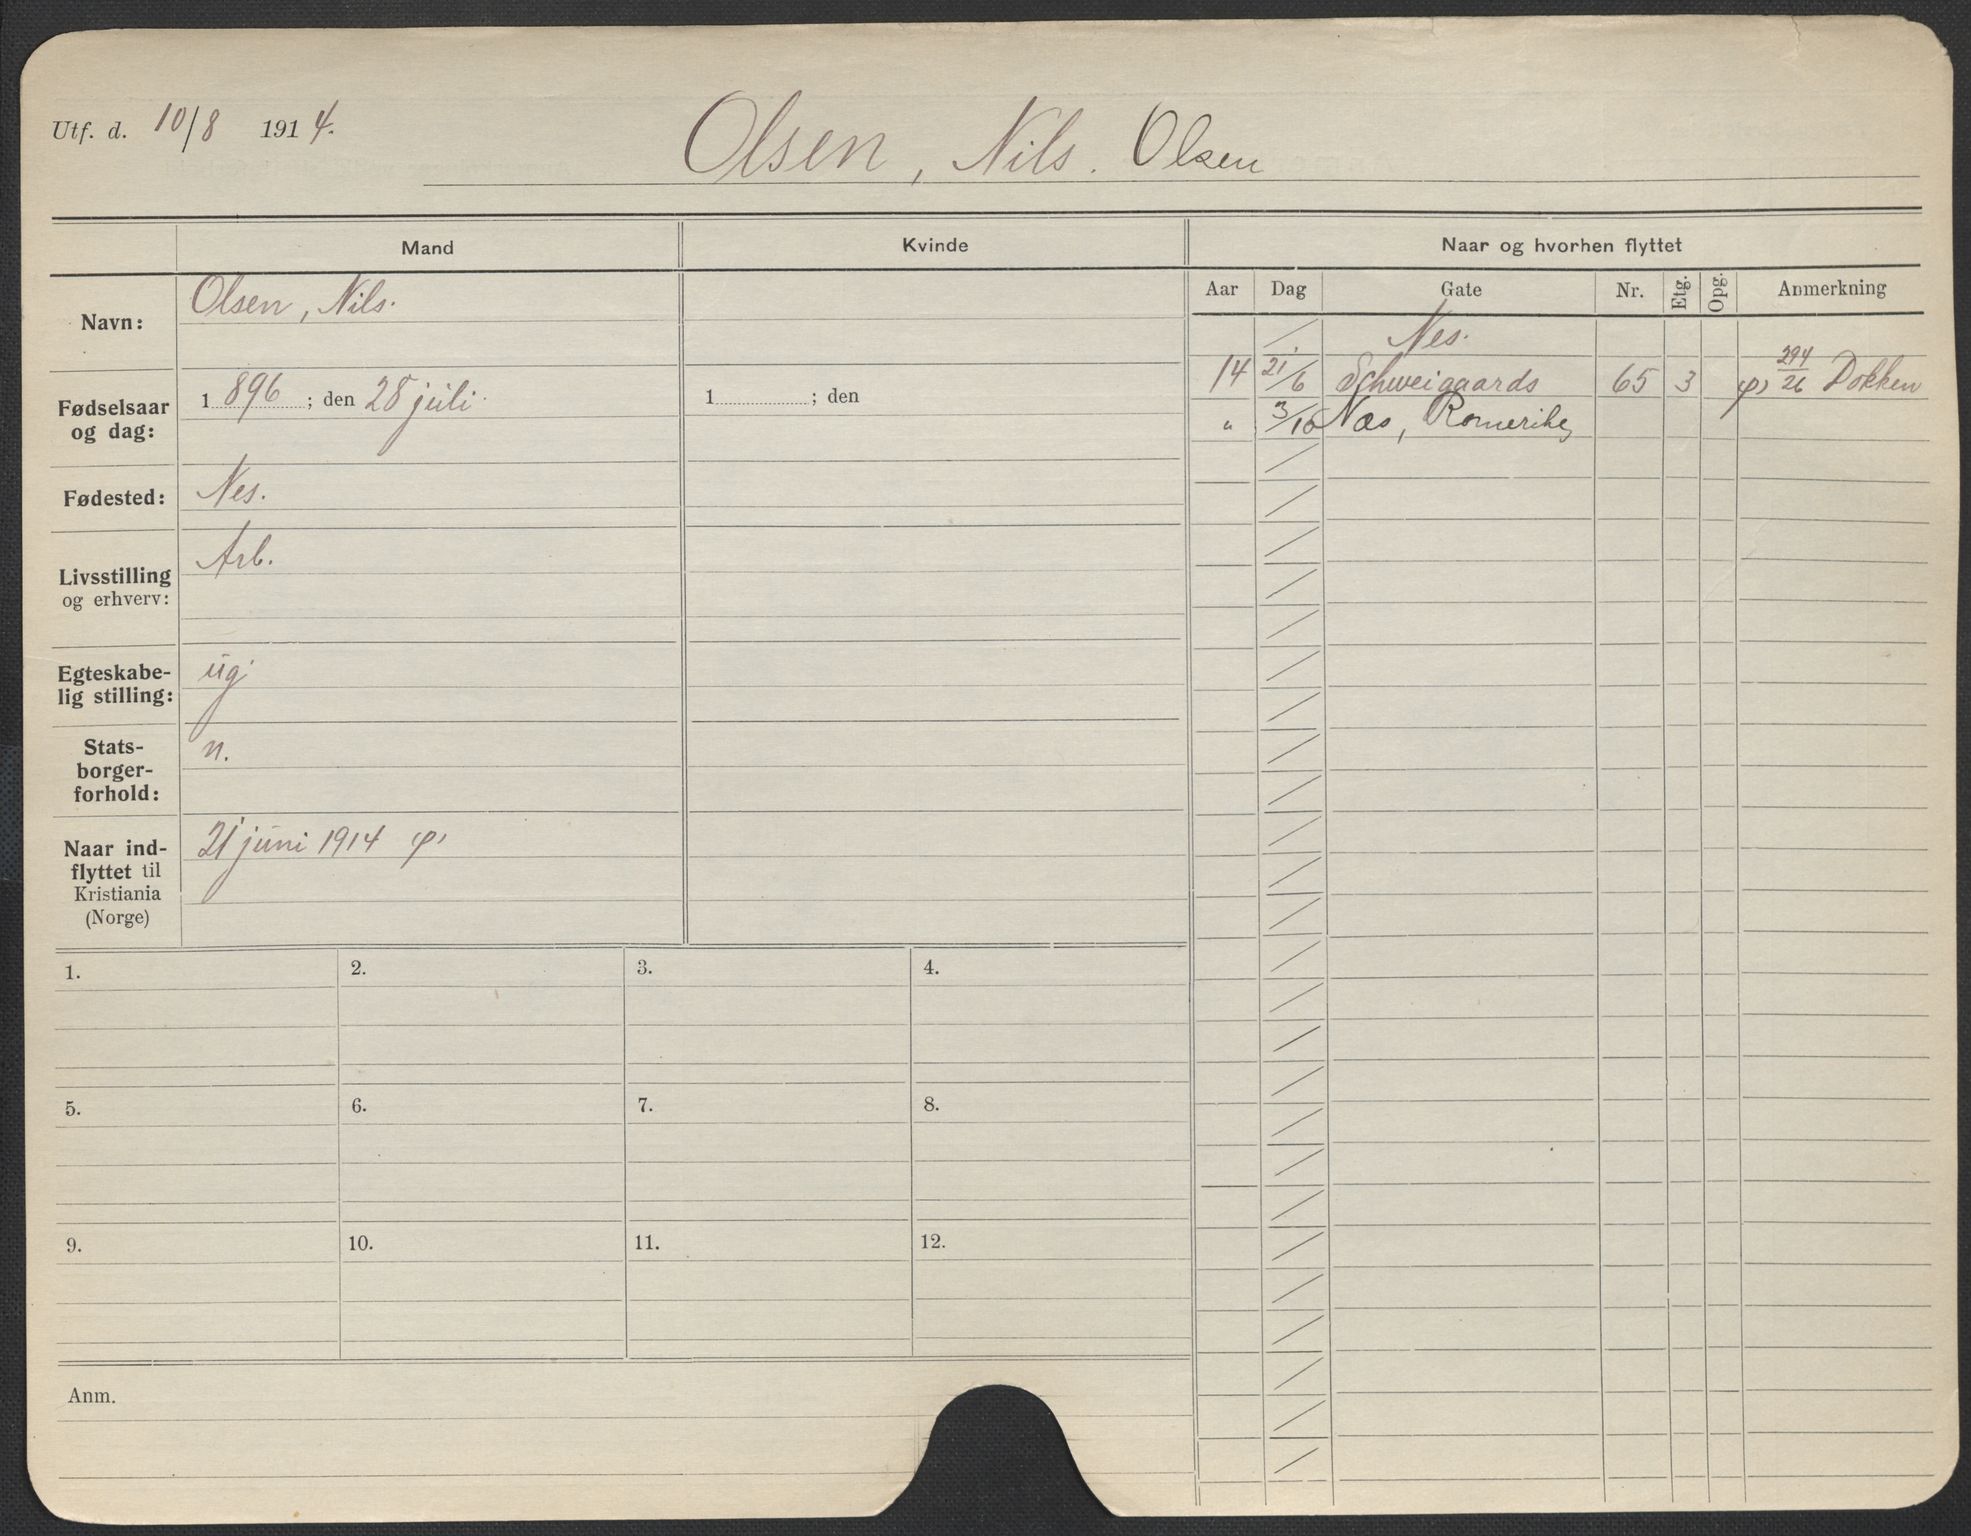 Utf. d. 10/8 1914.
Olsen, Nils. Olsen
Mand
Kvinde
Naar og hvorhen flyttet
Navn:
Olsen, Nils.
Aar Dag Gate Nr. Etg. Opg. Anmerkning
Nes.
14 21/6 Schweigaards 65 3 294/26 Dokken
" 3/10 Nes, Romerike
Fødselsaar
og dag:
1896; den 28 juli
1 ; den
Fødested:
Nes.
Livsstilling
og erhverv:
Arb.
Egteskabe-
lig stilling:
ug.
Stats-
borger-
forhold:
n.
Naar ind-
flyttet til
Kristiania
(Norge)
21 juni 1914
1. 2. 3. 4.
5. 6. 7. 8.
9. 10. 11. 12.
Anm.